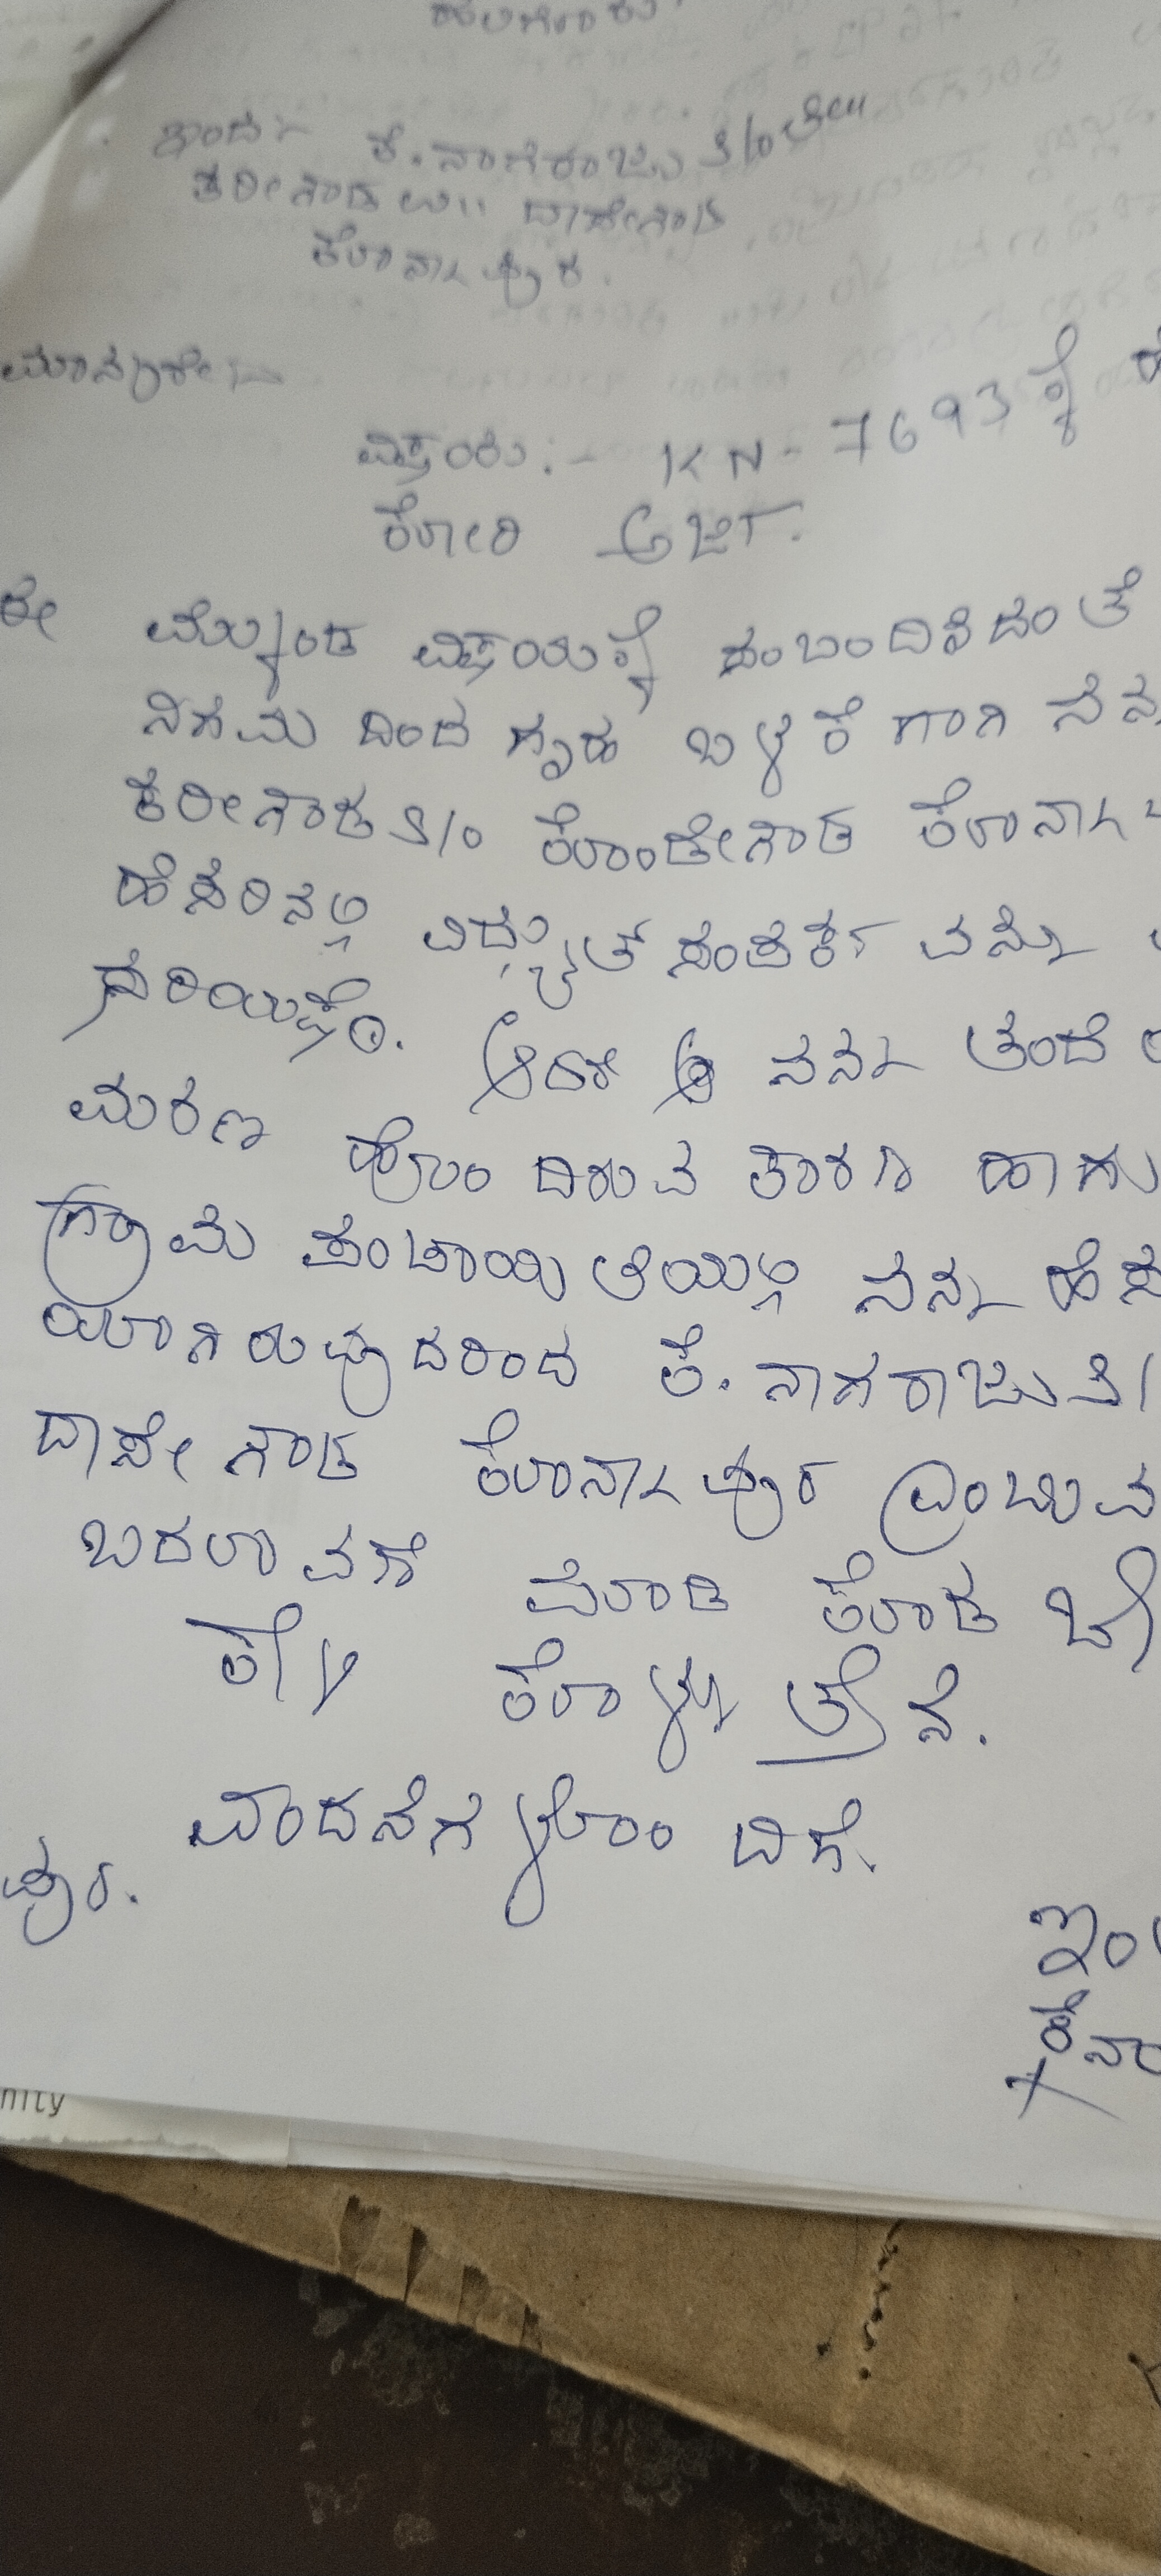 ಇಂದ
ಕೆ.ನಾಗರಾಜು S/o ಲೇ||
ಕರೀಗೌಡ ಉ|| ದಾಸೇಗೌಡ
ಕೊನ್ನಾಪುರ.
ಮಾನ್ಯರೇ,
ವಿಷಯ:- KN-7693 ಕ್ಕೆ
ಕೋರಿ ಅರ್ಜಿ.
ಮೇಲ್ಕಂಡ ವಿಷಯಕ್ಕೆ ಸಂಬಂದಿಸಿದಂತೆ
ನಿಗಮ ದಿಂದ ಗೃಹ ಬಳಕೆ ಗಾಗಿ ನನ್ನ
ಕರೀಗೌಡ S/o ಕೊಂಡೇಗೌಡ ಕೊನ್ನಾ
ಹೆಸರಿನಲ್ಲಿ ವಿದ್ಯುತ್ ಸಂಪರ್ಕ ವನ್ನು
ಸರಿಯಷ್ಟೆ. ಆದರೆ ನನ್ನ ತಂದೆ
ಮರಣ ಹೊಂದಿರುವ ಕಾರಣ ಹಾಗು
ಗ್ರಾಮ ಪಂಚಾಯಿತಿಯಲ್ಲಿ ನನ್ನ ಹೆಸ
ಯಾಗಿರುವುದರಿಂದ ಕೆ.ನಾಗರಾಜು S/
ದಾಸೇಗೌಡ ಕೊನ್ನಾಪುರ ಎಂಬುವ
ಬದಲಾವಣೆ ಮಾಡಿ ಕೊಡ ಬೇ
ಕೇಳಿ ಕೊಳ್ಳುತ್ತೇನೆ.
ವಂದನೆಗಳೊಂದಿಗೆ.
ಪುರ.
ಇಂ
ಕೆ ನಾ
nity